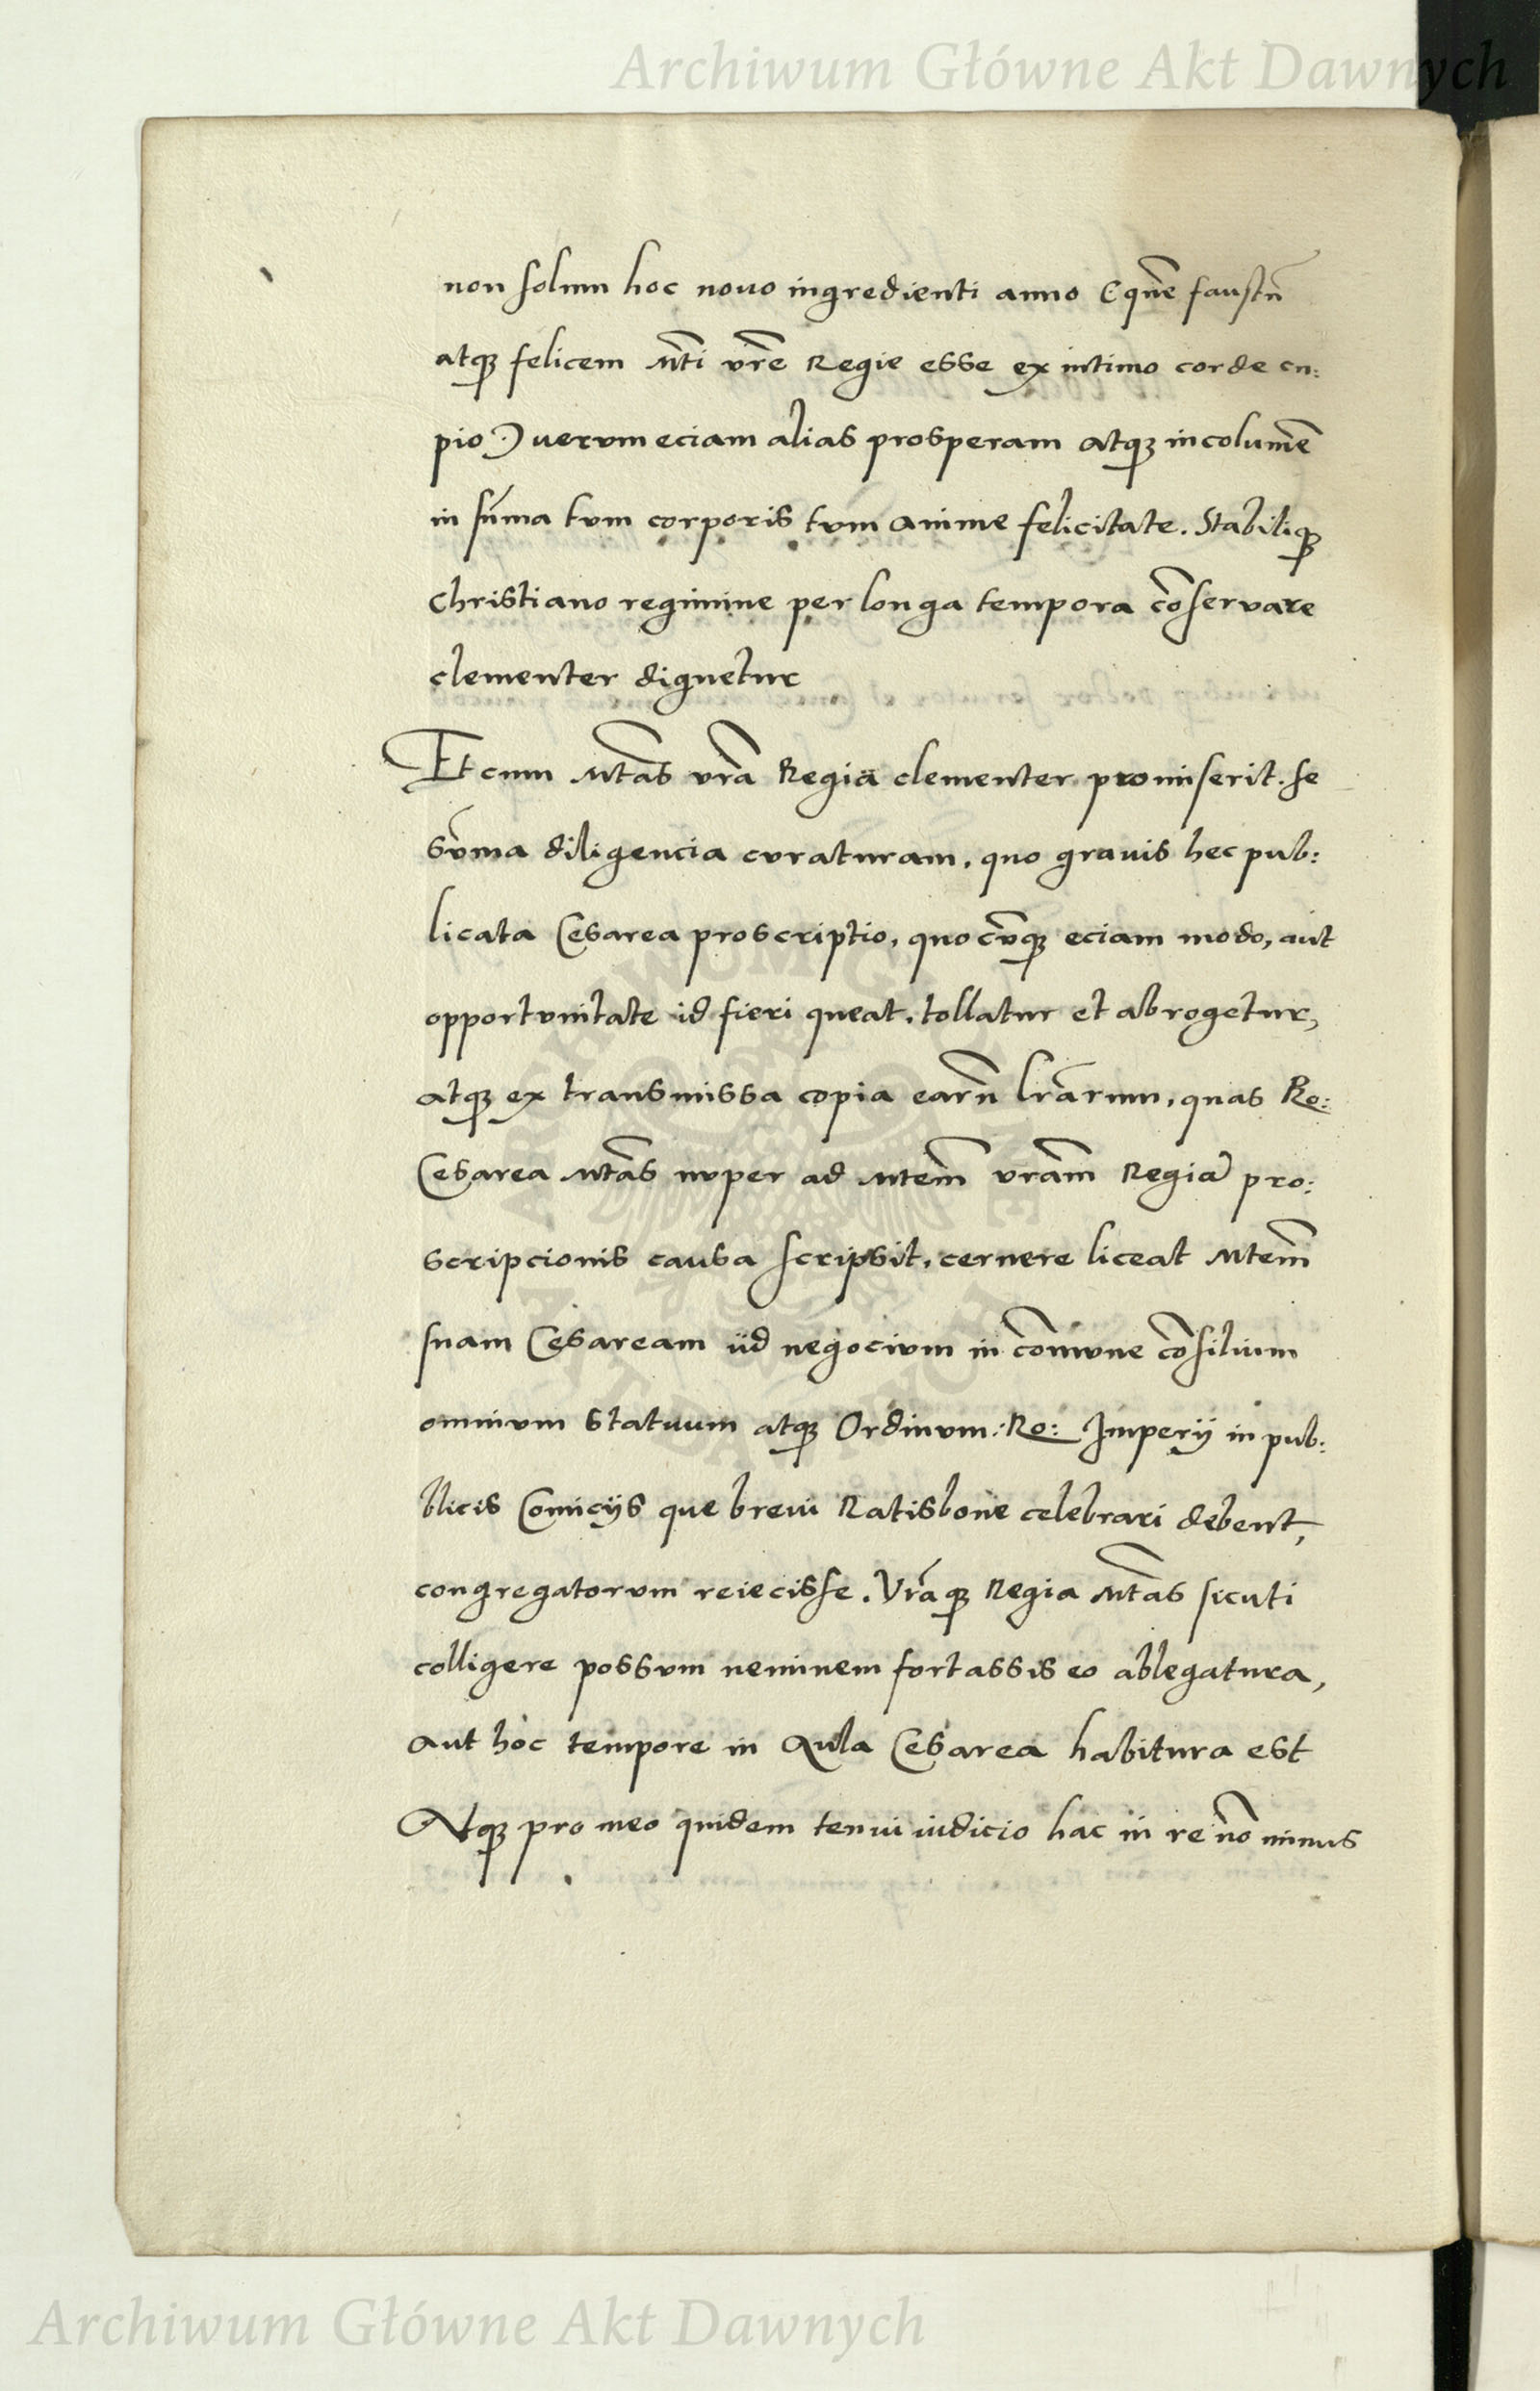 Archiwum Główne Akt Dawnych
non solum hoc nouo ingredienti anno (que͂ faustu͂
atq₃ felicem Mti͂ vre͂ Regie esse ex intimo corde cu:
pio.) uerum eciam alias prosperam atq₃ incolume͂
in su͂ma tum corporis tum anime felicitate. Stabiliq₃
Christiano regimine per longa tempora co͂servare
clementer dignetur
Et cum Mta͂s vra͂ Regia clementer promiserit. se
su͂ma diligencia curaturam, quo grauis hec pub:
licata Cesarea proscriptio, quocu͂q₃ eciam modo, aut
opportunitate id fieri queat, tollatur et abrogetur,
atq₃ ex transmissa copia earu͂ lra͂rum, quas Ro:
Cesarea Mta͂s nuper ad Mtem͂ vram͂ Regia͂ pro:
scripcionis causa scripsit, cernere liceat Mtem͂
suam Cesaream iid negocium in co͂mune co͂silium
omnium Statuum atq₃ Ordinum: Ro: Imperij in pub:
blicis Comicijs que breui Ratisbone celebrari debent,
congregatorum reiecisse. Vra͂q₃ Regia Mta͂s sicuti
colligere possum neminem fortassis eo ablegatura,
aut hoc tempore in Aula Cesarea habitura est
Atq₃ pro meo quidem tenui iudicio hac in re no͂ minus
ARCHIWUM GŁÓWNE AKT DAWNYCH
Archiwum Główne Akt Dawnych